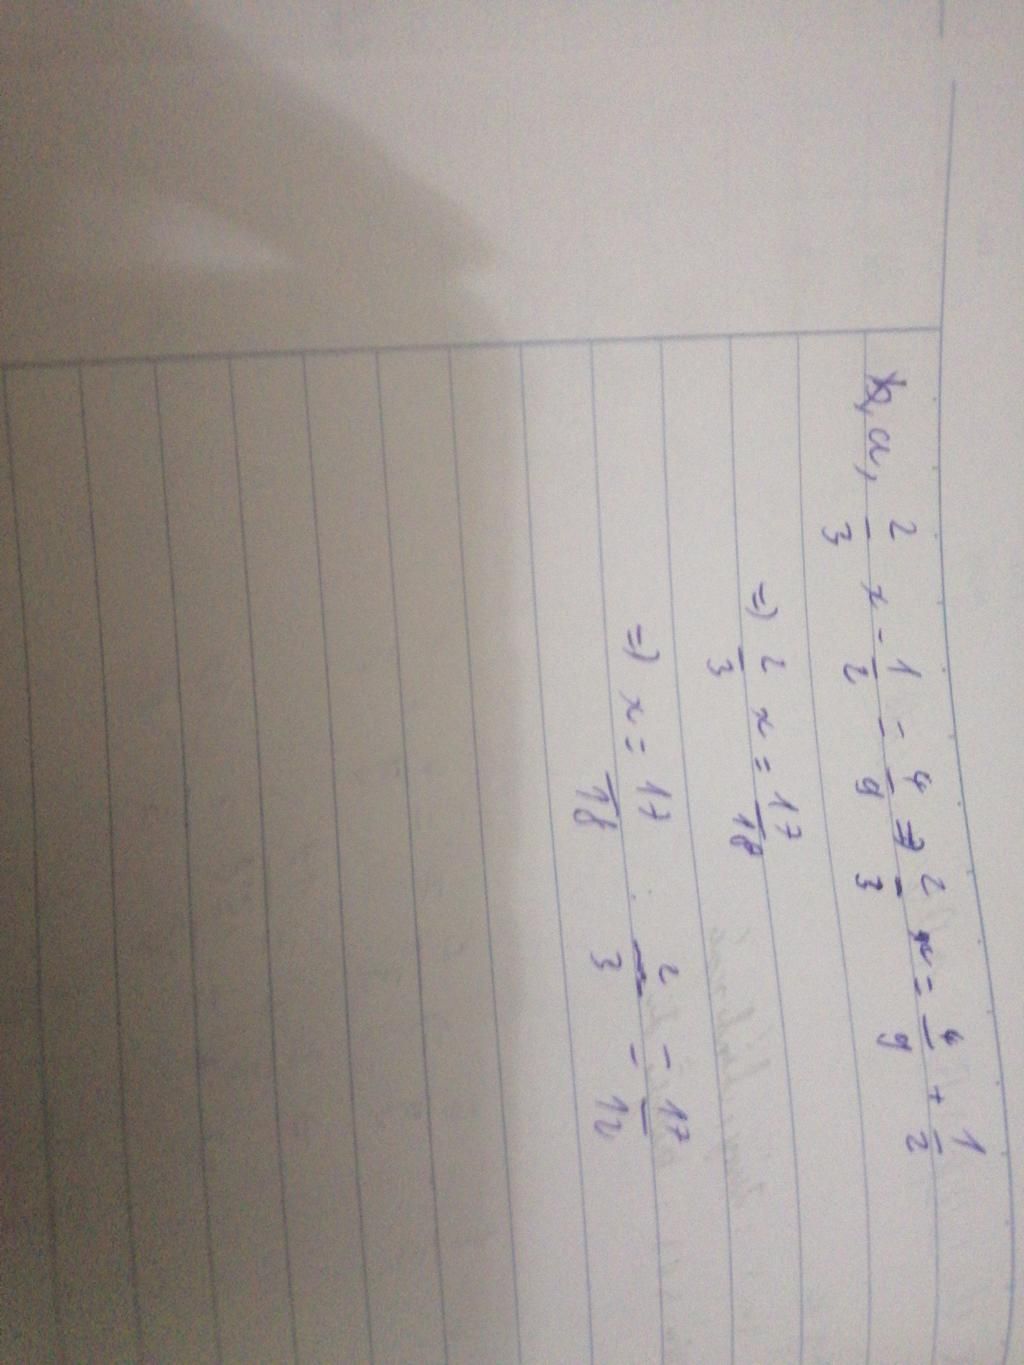 a, 2/3 x - 1/2 = 4/9 => 2/3 x = 4/9 + 1/2
=> 2/3 x = 17/18
=> x = 17/18 : 2/3 = 17/12